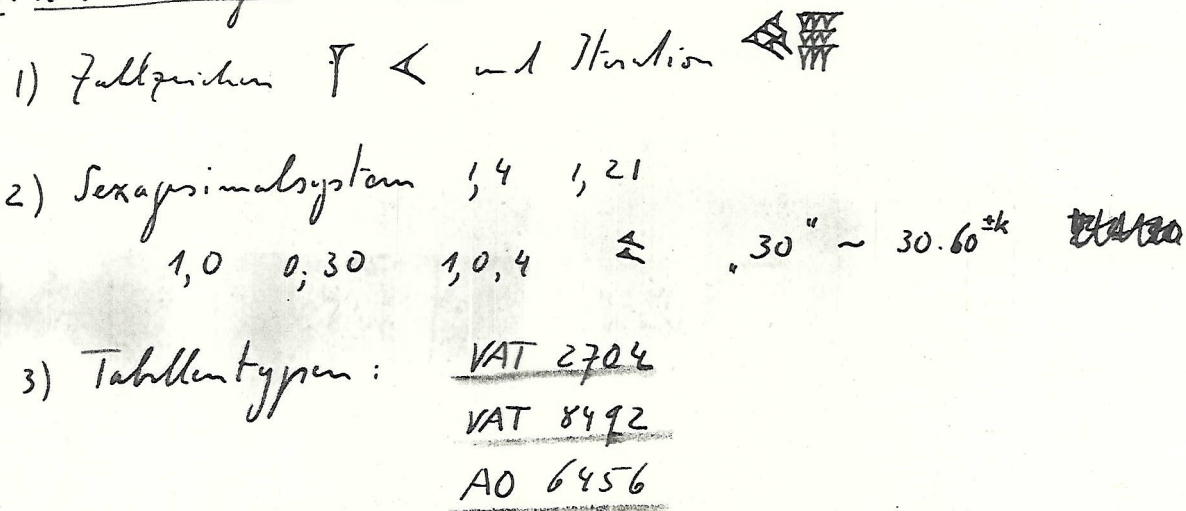 1) Zahlzeichen 𒁹 𒌋 und Iteration
2) Sexagesimalsystem 1,4 1,21
1,0 0;30 1,0,4 „30“ ~ 30·60^±k
3) Tabellentypen:
VAT 2704
VAT 8492
AO 6456